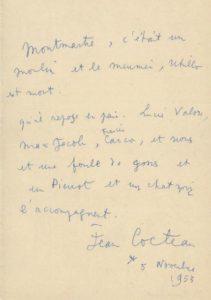 Montmartre, c'était un
moulin et le meunier, Utrillo
est mort.
qu'il repose en paix. Lucie Valore,
Max Jacob, Carco, et nous
et une foule de gens et
un Pierrot et un chat gris
l'accompagnent.
Jean Cocteau
* 5 Novembre
1955